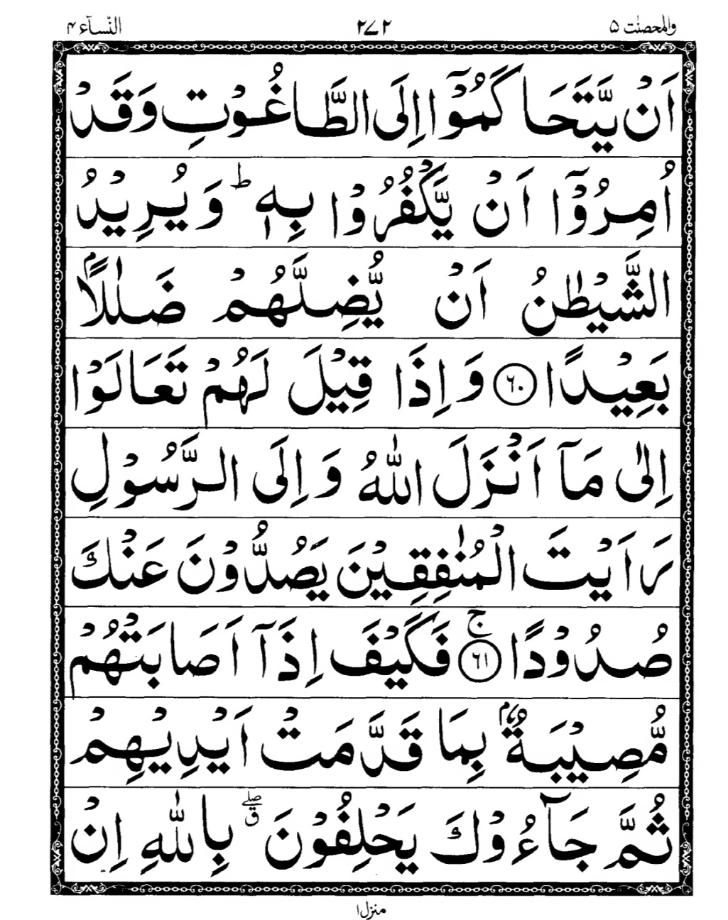 والمحصنت ۵ ۲۷۲ النسآء ۴
اَنْ يَّتَحَاكَمُوْۤا اِلَى الطَّاغُوْتِ وَقَدْ
اُمِرُوْۤا اَنْ يَّكْفُرُوْا بِهٖ ؕ وَيُرِيْدُ
الشَّيْطٰنُ اَنْ يُّضِلَّهُمْ ضَلٰلًاۢ
بَعِيْدًا ۶۰ وَاِذَا قِيْلَ لَهُمْ تَعَالَوْا
اِلٰى مَاۤ اَنْزَلَ اللّٰهُ وَاِلَى الرَّسُوْلِ
رَاَيْتَ الْمُنٰفِقِيْنَ يَصُدُّوْنَ عَنْكَ
صُدُوْدًا ۚ ۶۱ فَكَيْفَ اِذَاۤ اَصَابَتْهُمْ
مُّصِيْبَةٌۢ بِمَا قَدَّمَتْ اَيْدِيْهِمْ
ثُمَّ جَآءُوْكَ يَحْلِفُوْنَ ۖۗ بِاللّٰهِ اِنْ
منزل۱